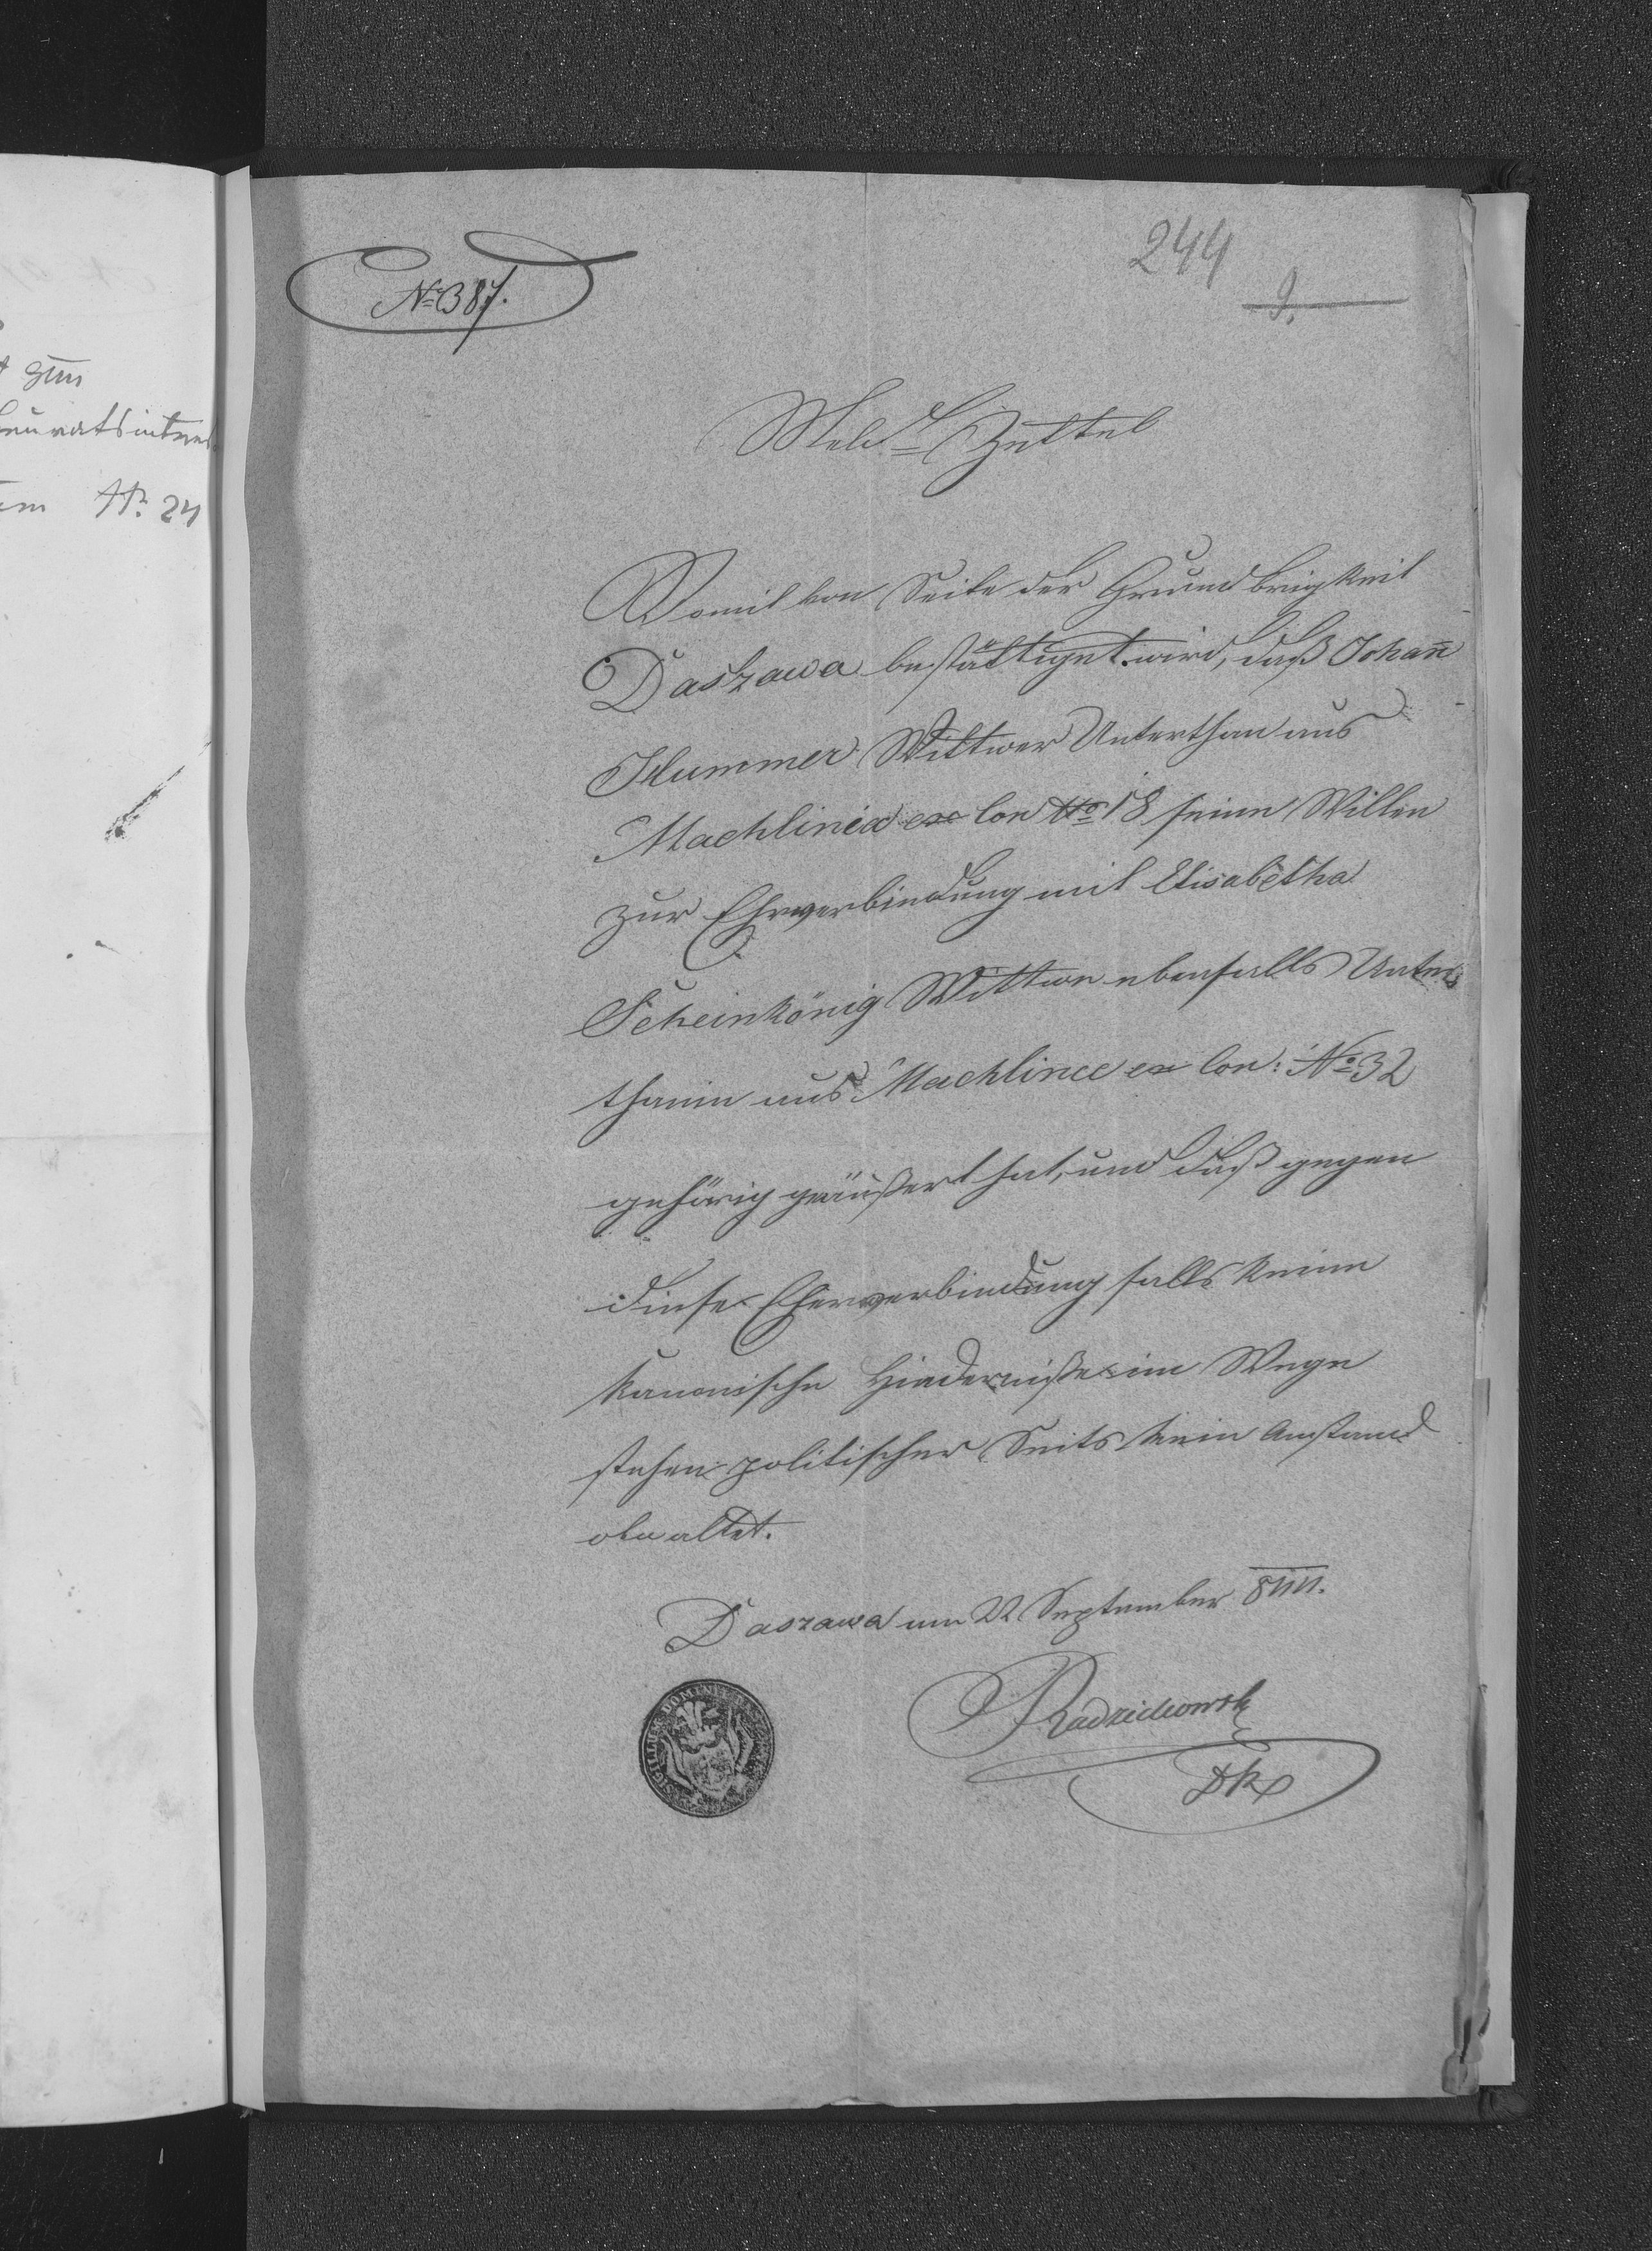 zun
Nr. 24
244
No 387.
9.
Meld=Zettel
Womit von Seite der Grundobrigkeit
Daszawa bestättiget wird, daß Johann̄
Kummer Wittwer Unterthan aus
Machliniec ex Con No 18 seine Willen
zur Eheverbindung mit Elisabetha
Scheinkönig Wittwe ebenfalls Unter
thanin aus Machlince ex Con: No 32
gehörig geäußert hat, und daß gegen
diese Eheverbindung falls keine
kanonische Hinderniße im Wege
stehen politischer Seits kein Anstand
obwaltet.
Daszawa am 22 September
SIGILLUM DOMINII
Radziechowsk